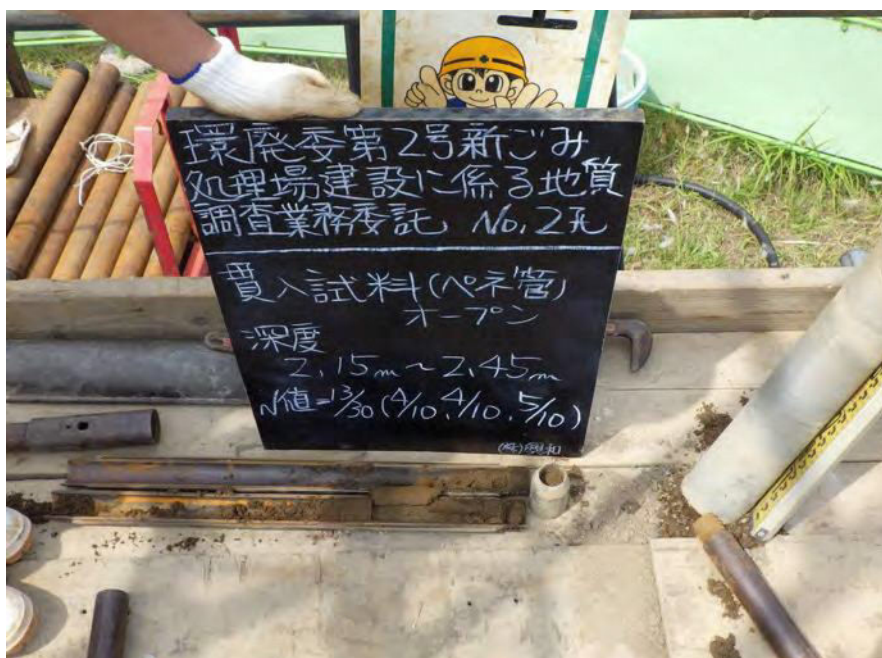 環廃委第2号新ごみ
処理場建設に係る地質
調査業務委託 No.2孔
貫入試料(ペネ管)
オープン
深度
2.15m~2.45m
N値=13/30(4/10.4/10.5/10)
(株)興和